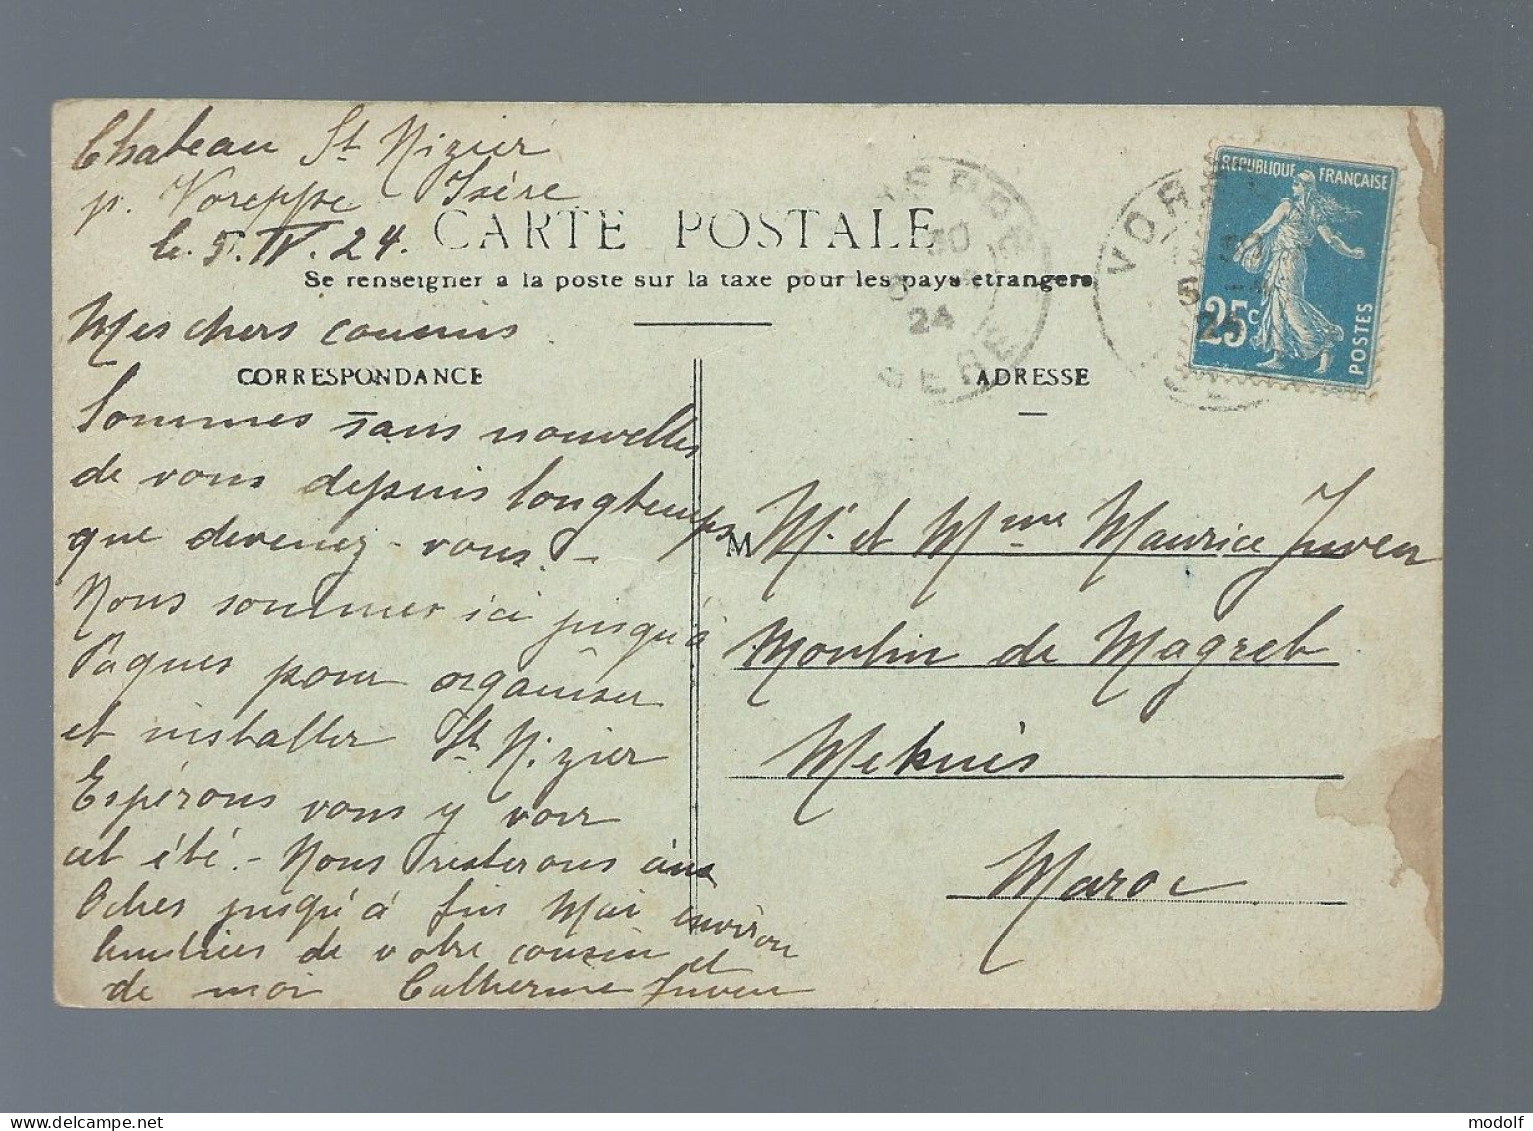 Chateau St Nizier
p. Voreppe Isère
le 5. IV. 24.
CARTE POSTALE
Se renseigner a la poste sur la taxe pour les pays etrangers
Mes chers cousins
CORRESPONDANCE
Sommes sans nouvelles
de vous depuis longtemps
que devenez-vous. -
Nous sommes ici jusqu'à
Pâques pour organiser
et installer St Nizier
Espérons vous y voir
cet été. - Nous resterons aux
Oches jusqu'à fin Mai environ
Amitiés de votre cousin et
de moi Catherine Juven
ADRESSE
M Mr. et Mme Maurice Juven
Moulin de Magreb
Meknès
Maroc
REPUBLIQUE FRANÇAISE
25c
POSTES
VOREPPE
ISERE
5
24
24
delcampe.net
modolf